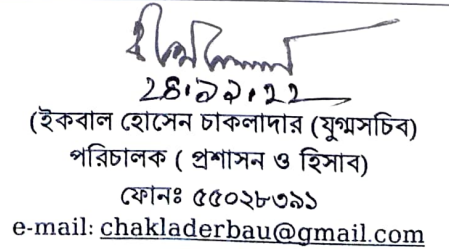 ২৪.১১.২২
(ইকবাল হোসেন চাকলাদার (যুগ্মসচিব)
পরিচালক ( প্রশাসন ও হিসাব)
ফোনঃ ৫৫০২৮৩৯১
e-mail: chakladerbau@gmail.com